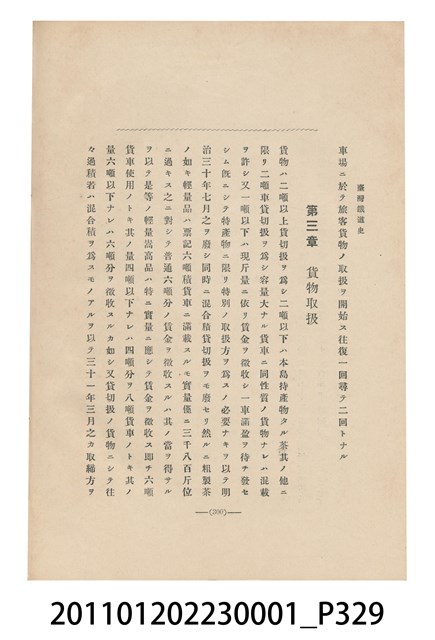 臺灣鐵道史
車場ニ於テ旅客貨物ノ取扱ヲ開始ス往復一回尋テ二回トナル
第三章　貨物取扱
貨物ハ二噸以上貨切扱ヲ爲シ二噸以下ハ本島特產物タル茶其ノ他ニ
限リ二噸車貨切扱ヲ爲シ容量大ナル貨車ニ同性質ノ貨物ナレハ混載
ヲ許シ又一噸以下ハ現斤量ニ依リ賃金ヲ徵收シ一車滿盈ヲ待チ發セ
シム既ニシテ特產物ニ限リ特別ノ取扱方ヲ爲スノ必要ナキヲ以テ明
治三十年七月之ヲ廢シ同時ニ混合積貸切扱ヲモ廢セリ然ルニ粗製茶
ノ如キ輕量品ハ票記六噸積貨車ニ滿載スルモ實量僅ニ三千八百斤位
ニ過キス之ニ對シテ普通六噸分ノ賃金ヲ徵收スルハ其ノ當ヲ得サル
ヲ以テ是等ノ輕量嵩高品ハ特ニ實量ニ應シテ賃金ヲ徵收ス卽チ六噸
貨車使用ノトキ其ノ量四噸以下ナレハ四噸分ヲ八噸貨車ノトキ其ノ
量六噸以下ナレハ六噸分ヲ徵收スルカ如シ又貸切扱ノ貨物ニシテ往
々過積者ハ混合積ヲ爲スモノアルヲ以テ三十一年三月之カ取締方ヲ
(300)
201101202230001_P329